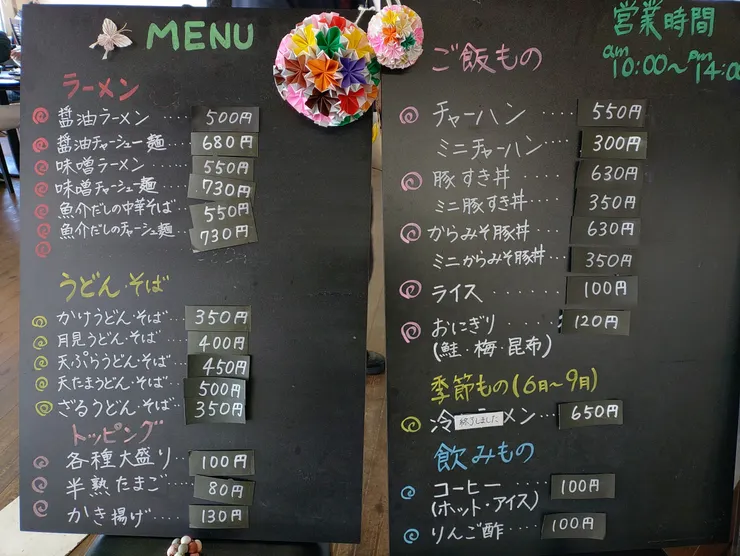 MENU
ラーメン
醤油ラーメン・・・500円
醤油チャーシュー麺・・680円
味噌ラーメン・・・550円
味噌チャーシュー麺・・730円
魚介だしの中華そば・・550円
魚介だしのチャーシュ麺・・730円
うどん・そば
かけうどん・そば・・350円
月見うどん・そば・・400円
天ぷらうどん・そば・・450円
天たまうどん・そば・・500円
ざるうどん・そば・・350円
トッピング
各種大盛り・・100円
半熟たまご・・80円
かき揚げ・・・130円
営業時間
am 10:00〜pm 14:00
ご飯もの
チャーハン・・・550円
ミニチャーハン・・・300円
豚すき丼・・・630円
ミニ豚すき丼・・・350円
からみそ豚丼・・・630円
ミニからみそ豚丼・・350円
ライス・・・100円
おにぎり・・・120円
(鮭・梅・昆布)
季節もの(6日〜9月)
冷 終了しました メン・・・650円
飲みもの
コーヒー・・・100円
(ホット・アイス)
りんご酢・・・100円